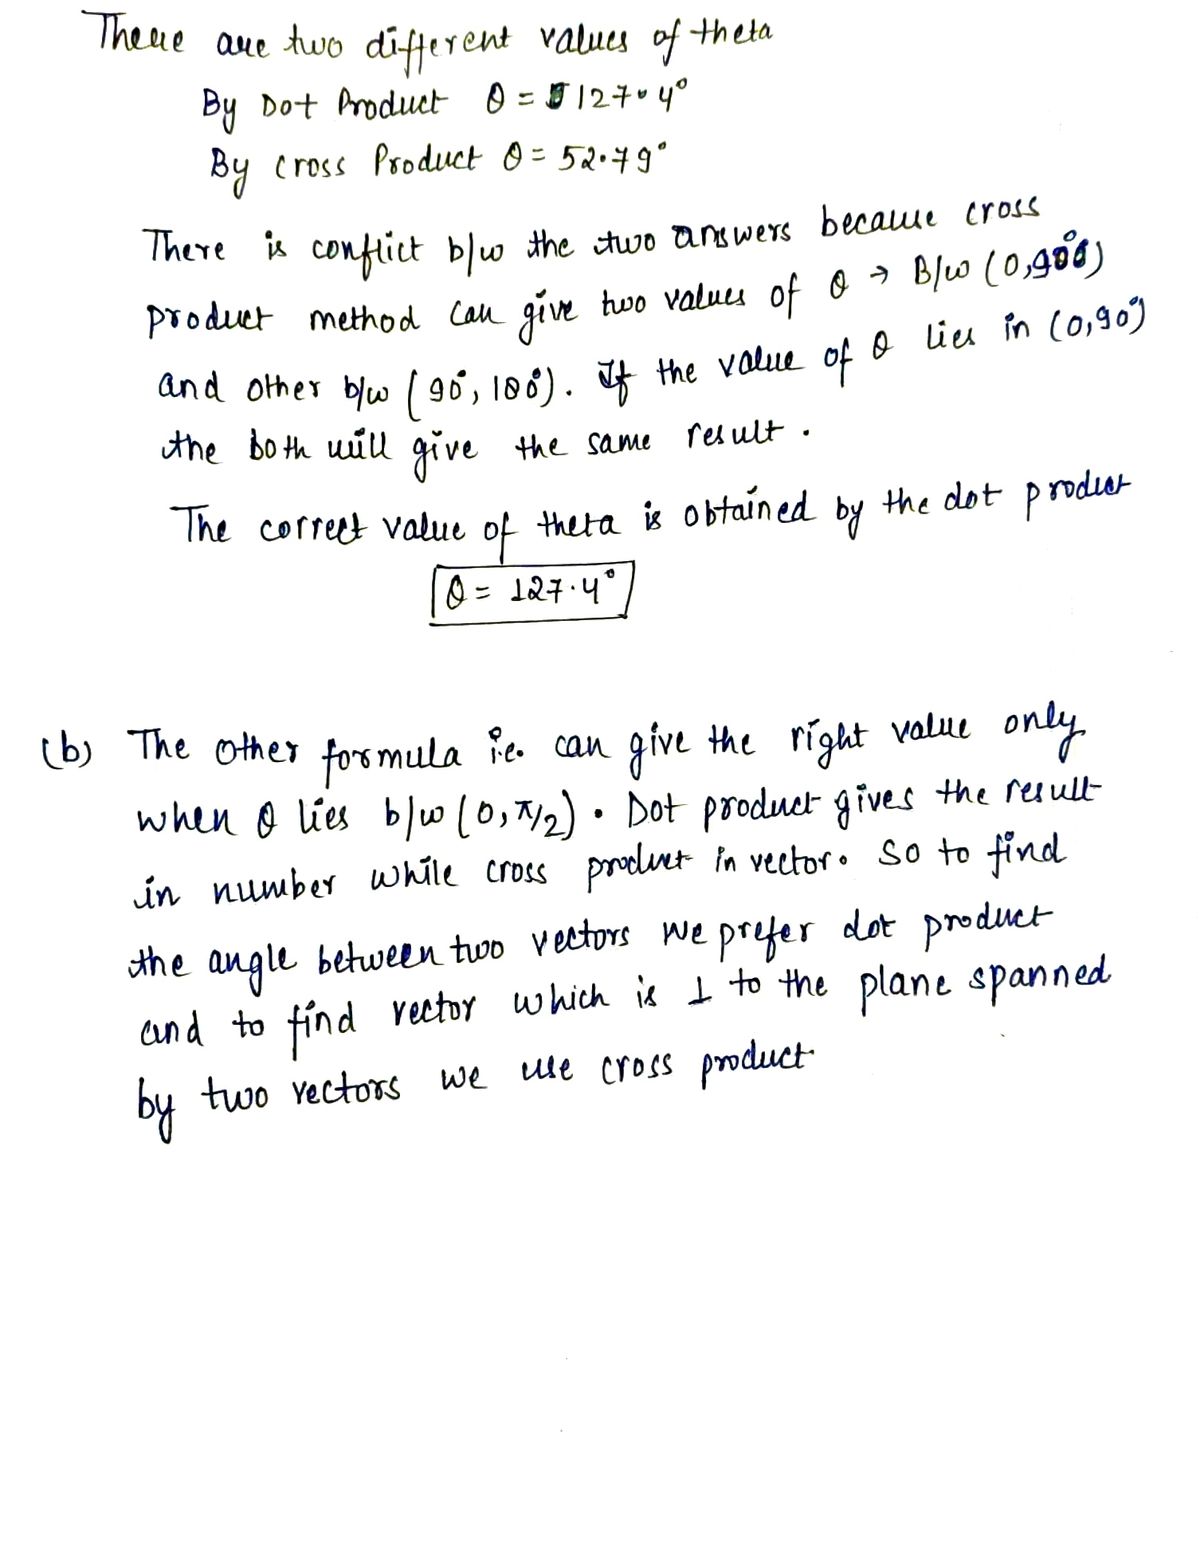 There are two different values of theta
By Dot Product θ = 127.4°
By cross Product θ = 52.79°
There is conflict b/w the two answers because cross
product method can give two values of θ → B/w (0,90°)
and other b/w (90°, 180°). If the value of θ lies in (0,90°)
the both will give the same result.
The correct value of theta is obtained by the dot product
θ = 127.4°
(b) The other formula i.e. can give the right value only
when θ lies b/w (0, π/2). Dot product gives the result
in number while cross product in vector. So to find
the angle between two vectors we prefer dot product
and to find vector which is ⊥ to the plane spanned
by two vectors we use cross product.